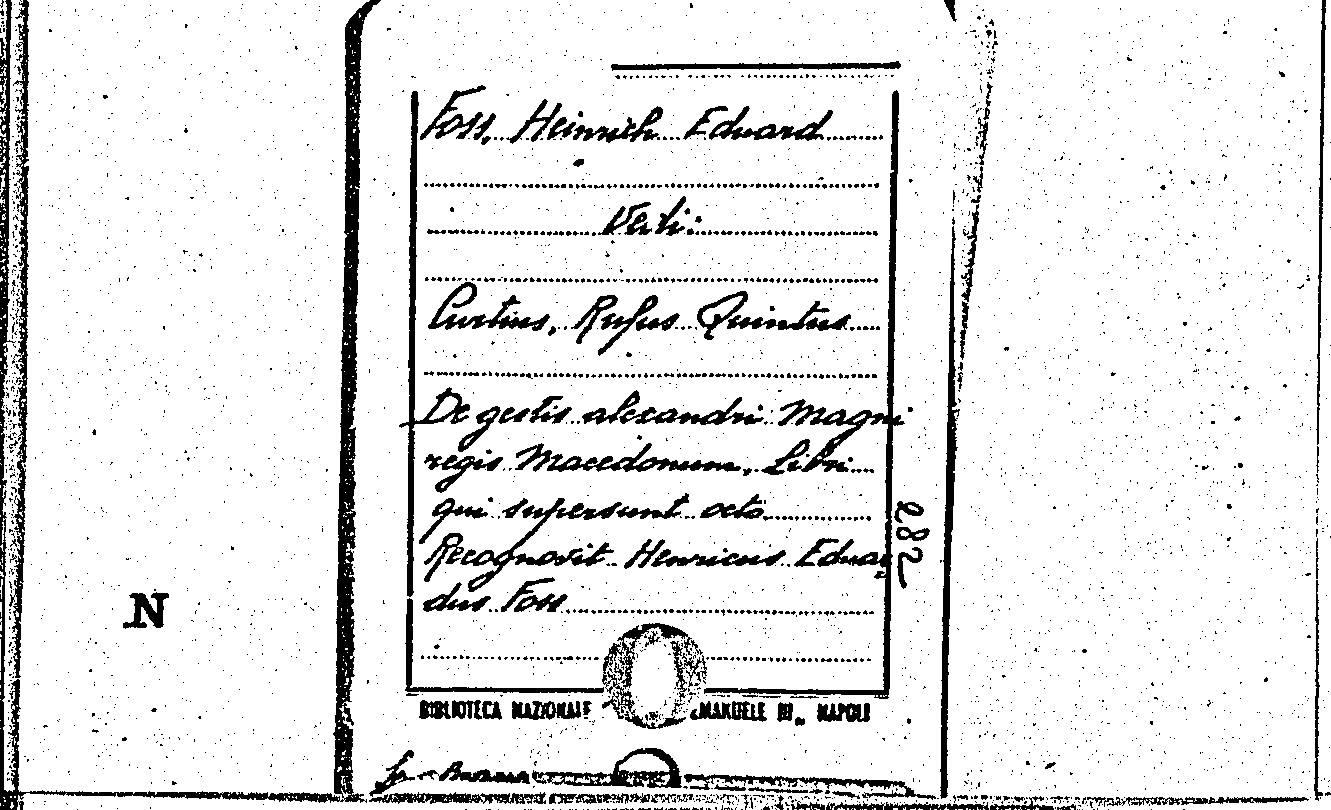 Foss, Heinrich Eduard
Vedi:
Curtius, Rufus Quintus
De gestis alexandri Magni
regis Macedonum, Libri
qui supersunt octo
Recognovit Henricus Eduar=
dus Foss
282
N
BIBLIOTECA NAZIONALE EMANUELE III„ NAPOLI